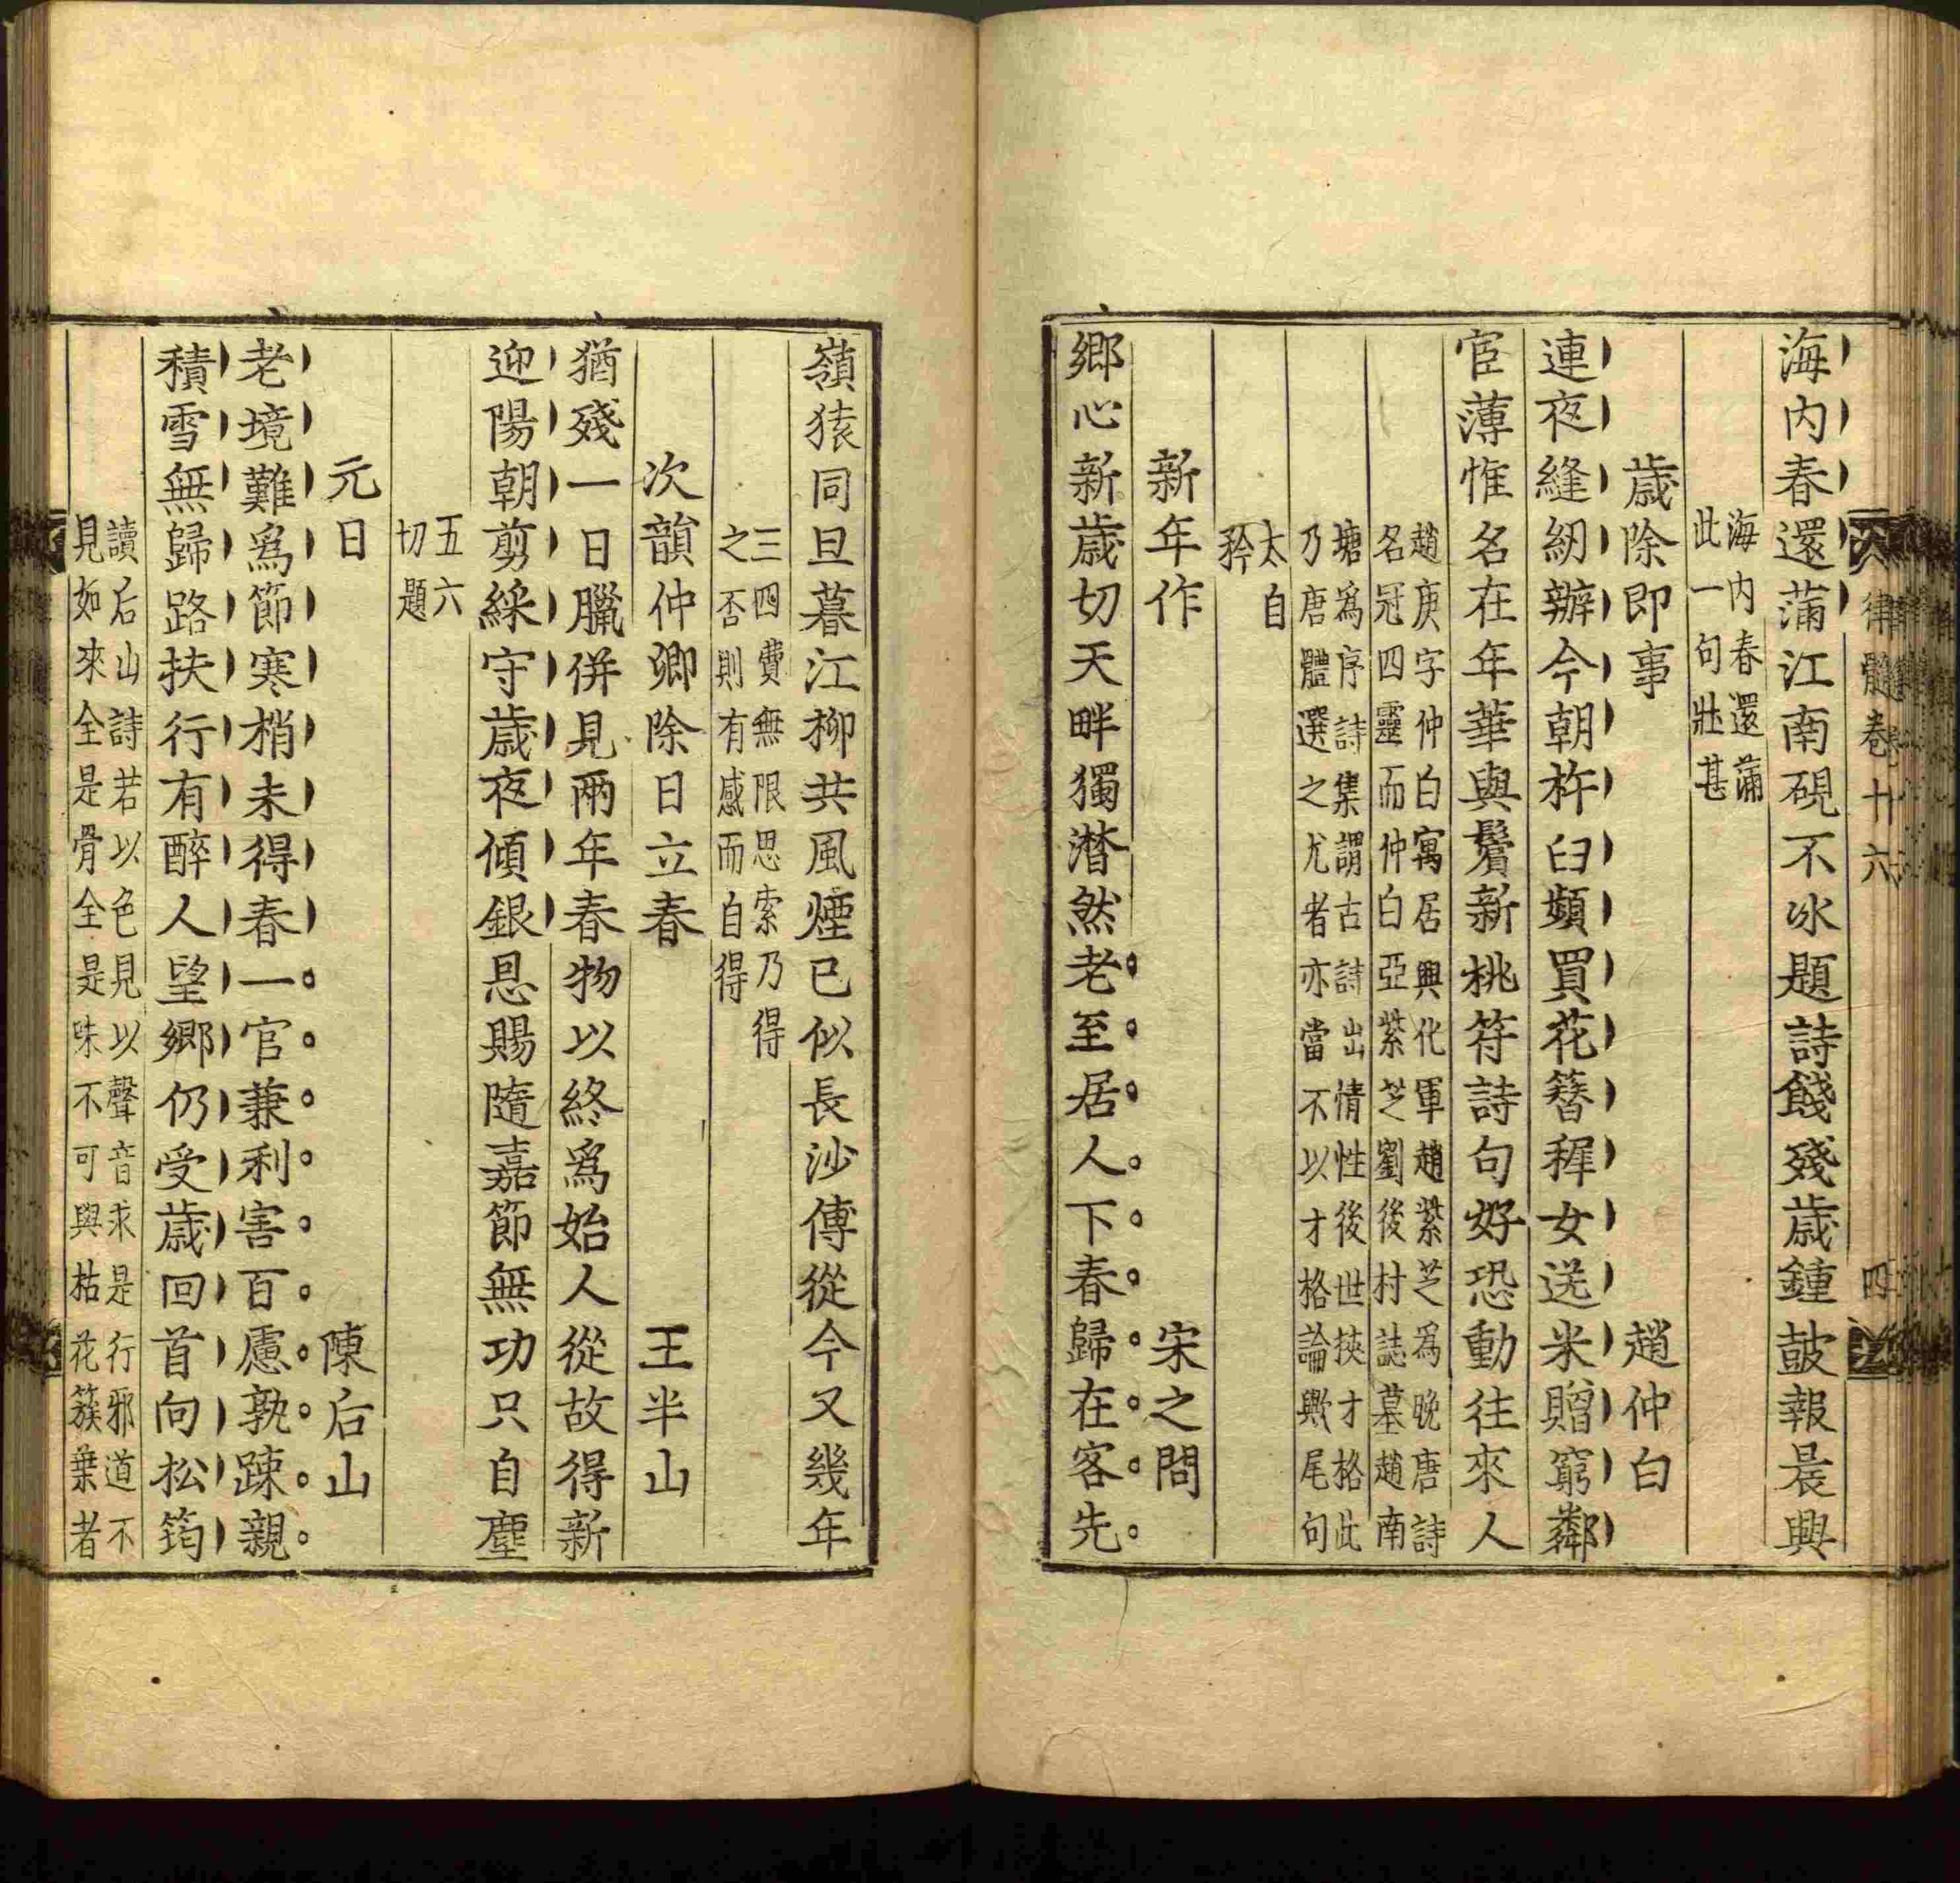 律髓卷十六
四
海内春還滿江南硯不冰題詩餞殘歲鍾鼓報晨興
海内春還滿
此一句壯甚
歲除即事
趙仲白
連夜縫紉辦今朝杵臼頻買花簪穉女送米贈窮鄰
宦薄惟名在年華與鬢新桃符詩句好恐動往來人
趙庚字仲白寓居興化軍趙紫芝爲晚唐詩
名冠四靈而仲白亞紫芝劉後村誌墓趙南
塘爲序詩集謂古詩出情性後世挾才格此
乃唐體選之尤者亦當不以才格論歟尾句
太自
矜
新年作
宋之問
鄉心新歲切天畔獨潸然老至居人下春歸在客先
嶺猿同旦暮江柳共風煙已似長沙傅從今又幾年
三四費無限思索乃得
之否則有感而自得
次韻仲卿除日立春
王半山
猶殘一日臘併見兩年春物以終爲始人從故得新
迎陽朝剪綵守歲夜傾銀恩賜隨嘉節無功只自塵
五六
切題
元日
陳后山
老境難爲節寒梢未得春一官兼利害百慮孰踈親
積雪無歸路扶行有醉人望鄉仍受歲回首向松筠
讀后山詩若以色見以聲音求是行邪道不
見如來全是骨全是味不可與枯花簇葉者